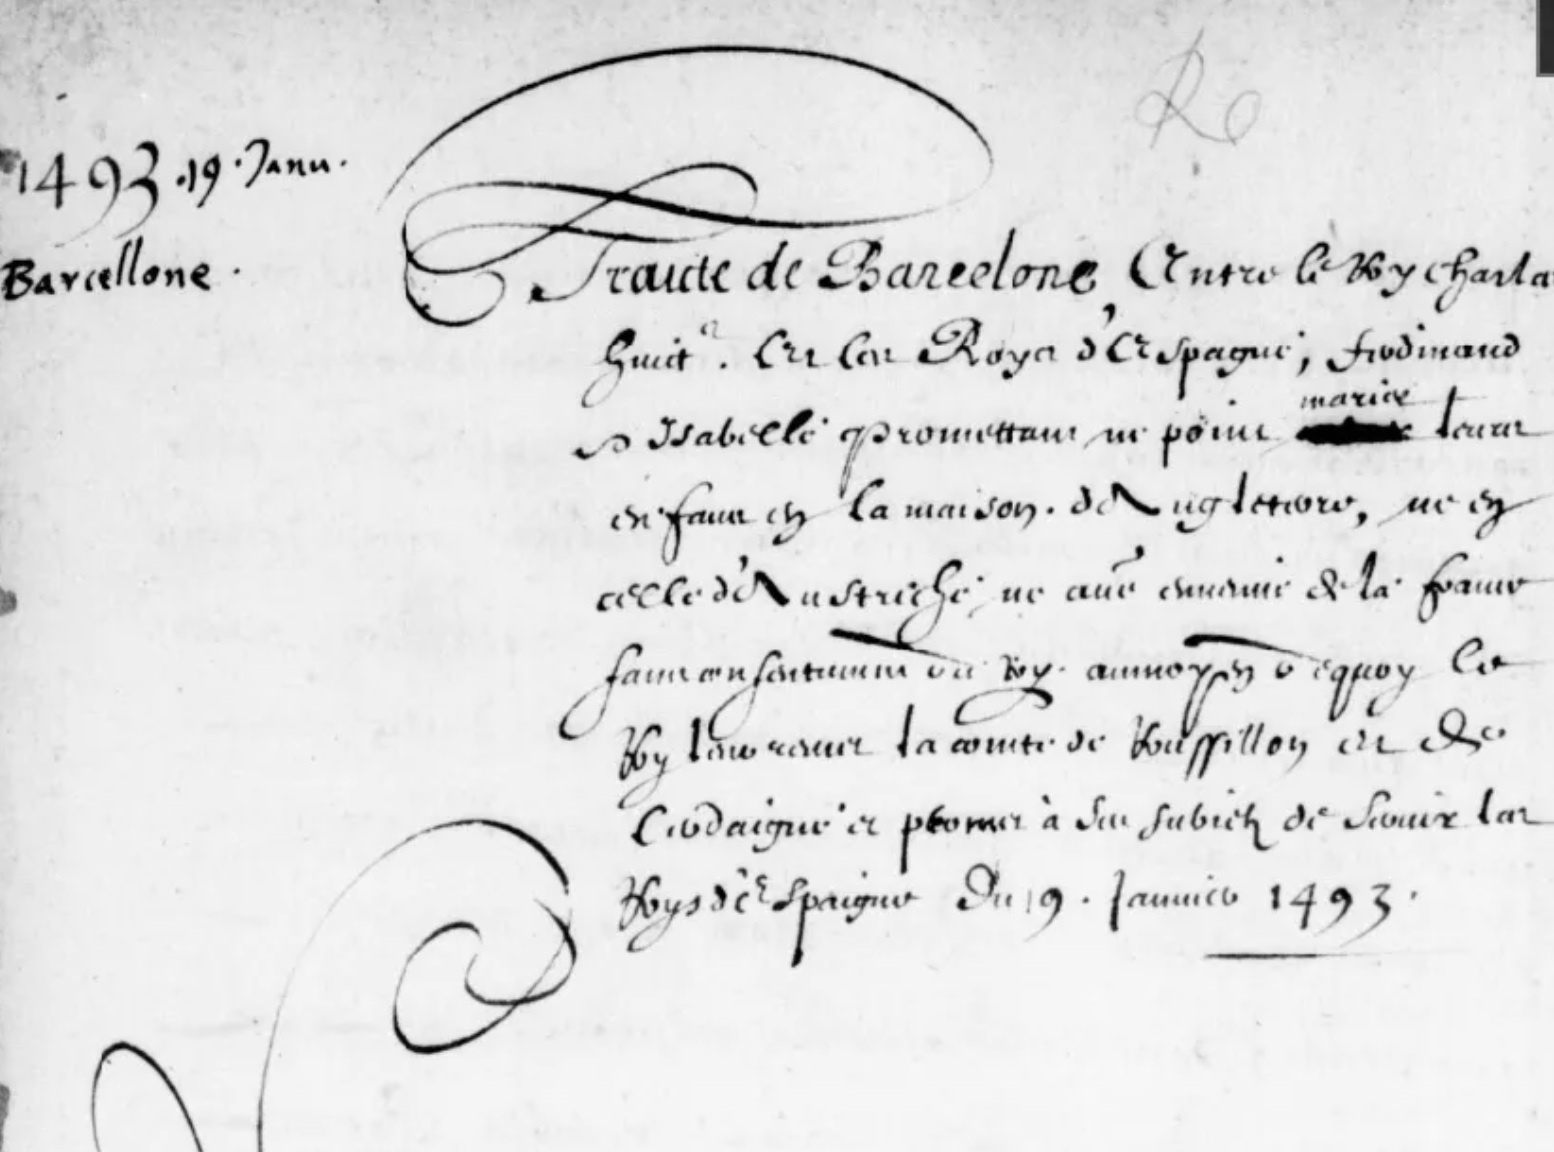 1493 . 19 . Janu .
Barcellone .
Traicte de Barcelone, Entre le Roy Charles
huict.e Et les Roys d'Espagne, ferdinand
& Isabelle promettans ne point marier leurs
enfans en la maison . de Angleterre, ne en
celle de Austriche ne aue ennemie de la france
sans consentement du Roy . aumoyen dequoy le
Roy leur remet la comte de Roussillon et de
Cerdaigne et promet à ses subietz de seruir les
Roys d'Espaigne Du 19 . Januier 1493 .